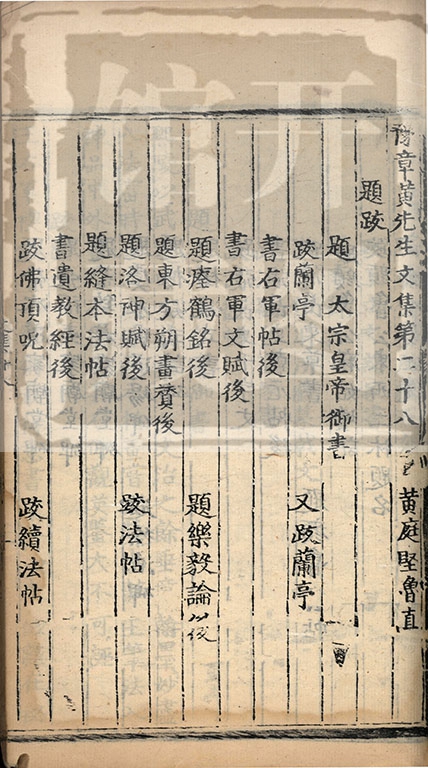 豫章黄先生文集第二十八 黄庭堅魯直
題跋
題 太宗皇帝御書
跋蘭亭 又跋蘭亭
書右軍帖後
書右軍文賦後
題瘞鶴銘後 題樂毅論後
題東方朔畫賛後
題洛神賦後 跋法帖
題絳本法帖
書遺教經後
跋佛頂呪 跋續法帖